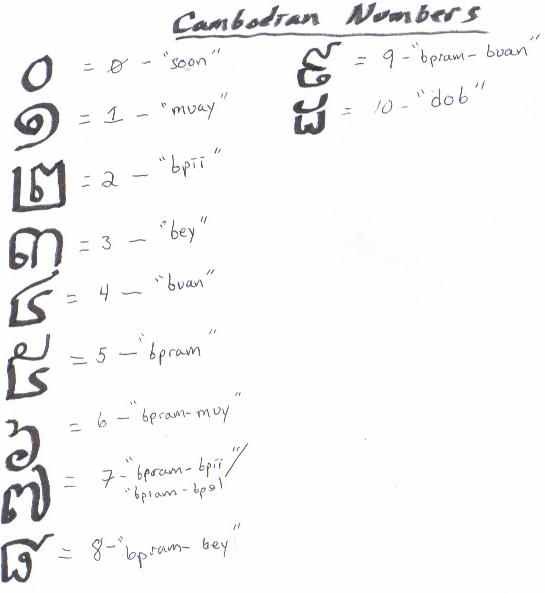 Cambodian Numbers
០ = 0 - "soon"
១ = 1 - "muay"
២ = 2 - "bpii"
៣ = 3 - "bey"
៤ = 4 - "buan"
៥ = 5 - "bpram"
៦ = 6 - "bpram-muy"
៧ = 7 - "bpram-bpii"/
"bpram-bpel"
៨ = 8 - "bpram-bey"
៩ = 9 - "bpram-buan"
ដ = 10 - "dob"